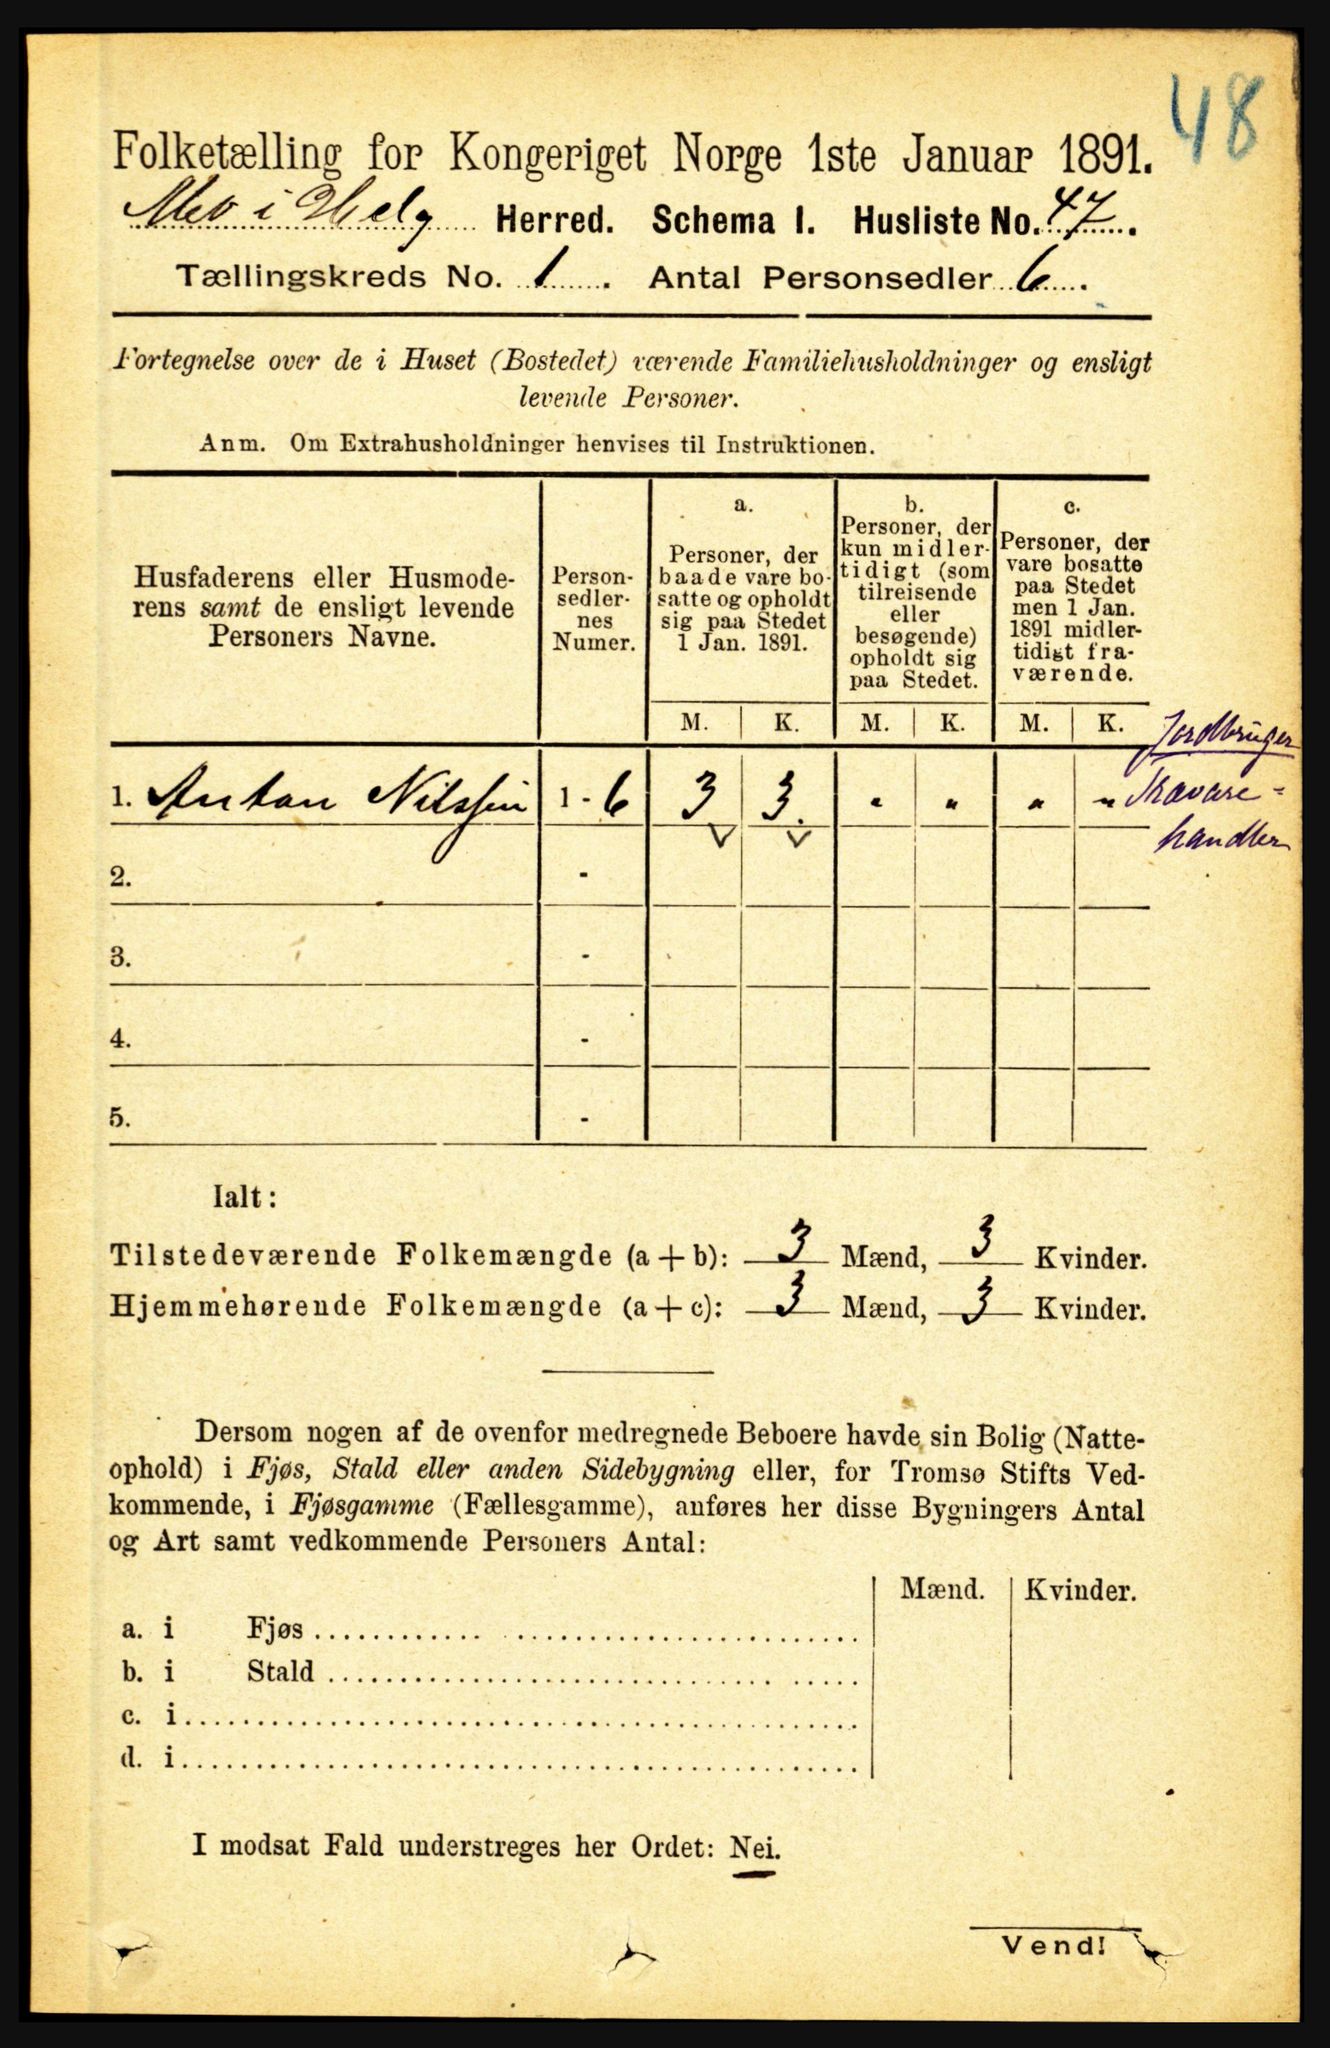 48
Folketælling for Kongeriget Norge 1ste Januar 1891.
Mo i Helg Herred. Schema I. Husliste No. 47.
Tællingskreds No. 1. Antal Personsedler 6.
Fortegnelse over de i Huset (Bostedet) værende Familiehusholdninger og ensligt
levende Personer.
Anm. Om Extrahusholdninger henvises til Instruktionen.
Husfaderens eller Husmode-
rens samt de ensligt levende
Personers Navne.
Person-
sedler-
nes
Numer.
a.
Personer, der
baade vare bo-
satte og opholdt
sig paa Stedet
1 Jan. 1891.
b.
Personer, der
kun midler-
tidigt (som
tilreisende
eller
besøgende)
opholdt sig
paa Stedet.
c.
Personer, der
vare bosatte
paa Stedet
men 1 Jan.
1891 midler-
tidigt fra-
værende.
M. K. M. K. M. K.
Jordbruger
1. Anton Nilssen 1 - 6 3 3. " " " " Trævare-
handler
2. -
3. -
4. -
5. -
Ialt:
Tilstedeværende Folkemængde (a + b): 3 Mænd, 3 Kvinder.
Hjemmehørende Folkemængde (a + c): 3 Mænd, 3 Kvinder.
Dersom nogen af de ovenfor medregnede Beboere havde sin Bolig (Natte-
ophold) i Fjøs, Stald eller anden Sidebygning eller, for Tromsø Stifts Ved-
kommende, i Fjøsgamme (Fællesgamme), anføres her disse Bygningers Antal
og Art samt vedkommende Personers Antal:
Mænd. Kvinder.
a. i Fjøs
b. i Stald
c. i
d. i
I modsat Fald understreges her Ordet: Nei.
Vend!